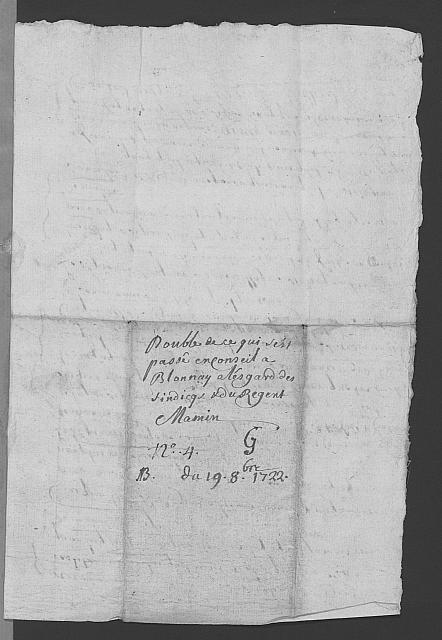 Double de ce qui s'est
passé en Conseil a
Blonnay a lesgard des
sindicqs & du Regent
Mamin
N.o 4. G
B. du 19. 8.bre 1722.